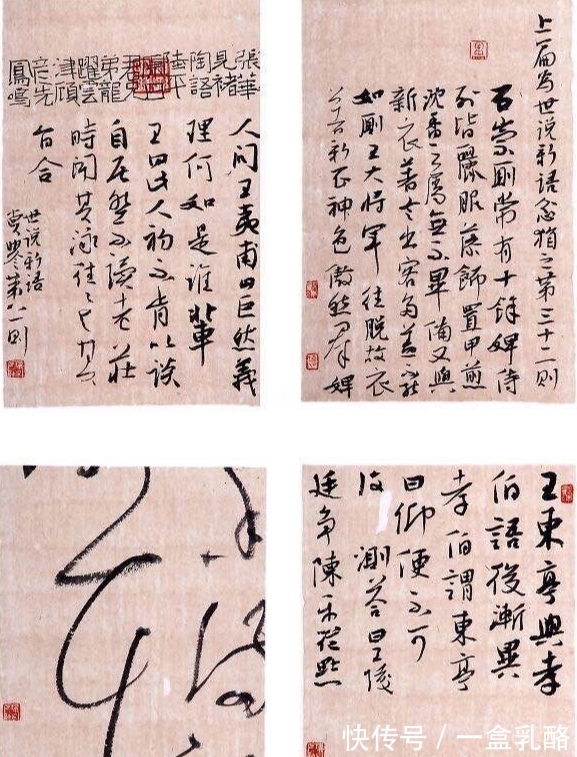 張華
見褚
陶語
陸平
弟龍
躍雲
津顧
彦先
鳳鳴
人问王夷甫山巨然義
理何如是誰輩
王曰此人初不肯以談
自居然不讀老莊
時聞其詠往往
旨合
世說新語
賞譽第八則
上一篇为世说新語忿狷之第三十二則
石崇厠常有十餘婢侍
列皆麗服藻飾置甲煎
沈香之屬無不畢備又與
新衣著令出客多羞不能
如厠王大將軍往脱故衣
神色傲然羣婢
王東亭與孝
伯語後漸異
孝伯謂東亭
曰卿便不可
復測答曰王陵
廷争陳平從默
快传号 / 一盒乳酪